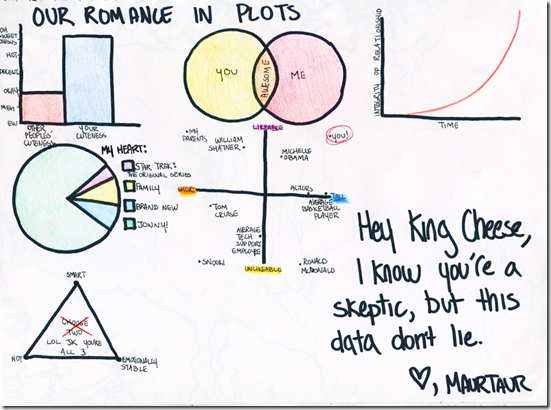 OUR ROMANCE IN PLOTS
OH
SWEET
JESUS
HOT
DECENT
OKAY
MEH
EW
OTHER
PEOPLES'
CUTENESS
YOUR
CUTENESS
YOU
AWESOME
ME
INTEGRITY OF RELATIONSHIP
TIME
MY HEART:
STAR TREK:
THE ORIGINAL SERIES
FAMILY
BRAND NEW
JONNY!
LIKEABLE
you!
MY
PARENTS
WILLIAM
SHATNER
MICHELLE
OBAMA
SHORT
ACTORS
TALL
AVERAGE
BASKETBALL
PLAYER
TOM
CRUISE
AVERAGE
TECH
SUPPORT
EMPLOYEE
SNOOKI
RONALD
MCDONALD
UNLIKEABLE
SMART
CHOOSE
TWO
LOL JK YOU'RE
ALL 3
HOT
EMOTIONALLY
STABLE
Hey King Cheese,
I know you're a
skeptic, but this
data don't lie.
♡, MAURTAUR